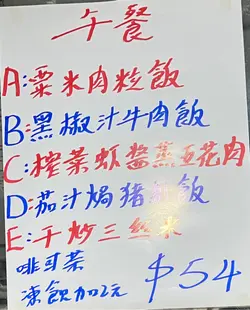 午餐
A:粟米肉粒飯
B:黑椒汁牛肉飯
C:榨菜蝦醬蒸五花肉
D:茄汁焗豬飯
E:干炒三絲米
啡可茶
凍飲加2元
$54